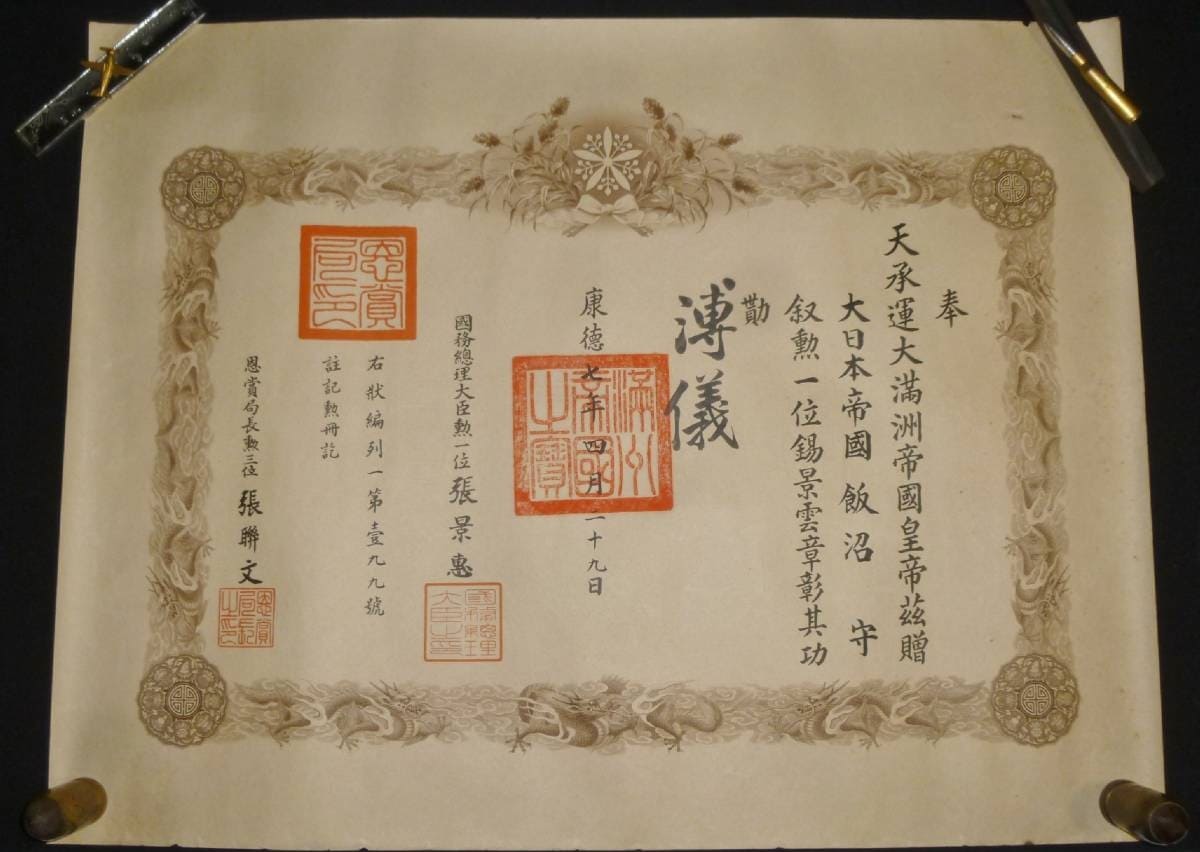 奉
天承運大滿洲帝國皇帝茲贈
大日本帝國飯沼 守
叙勲一位錫景雲章彰其功
勩
溥儀
康德七年四月二十九日
滿洲帝國之寶
國務總理大臣勲一位張景惠
國務總理大臣之印
右狀編列一第壹九九號
註記勲冊訖
恩賞局印
恩賞局長勲三位張聯文
恩賞局長之印